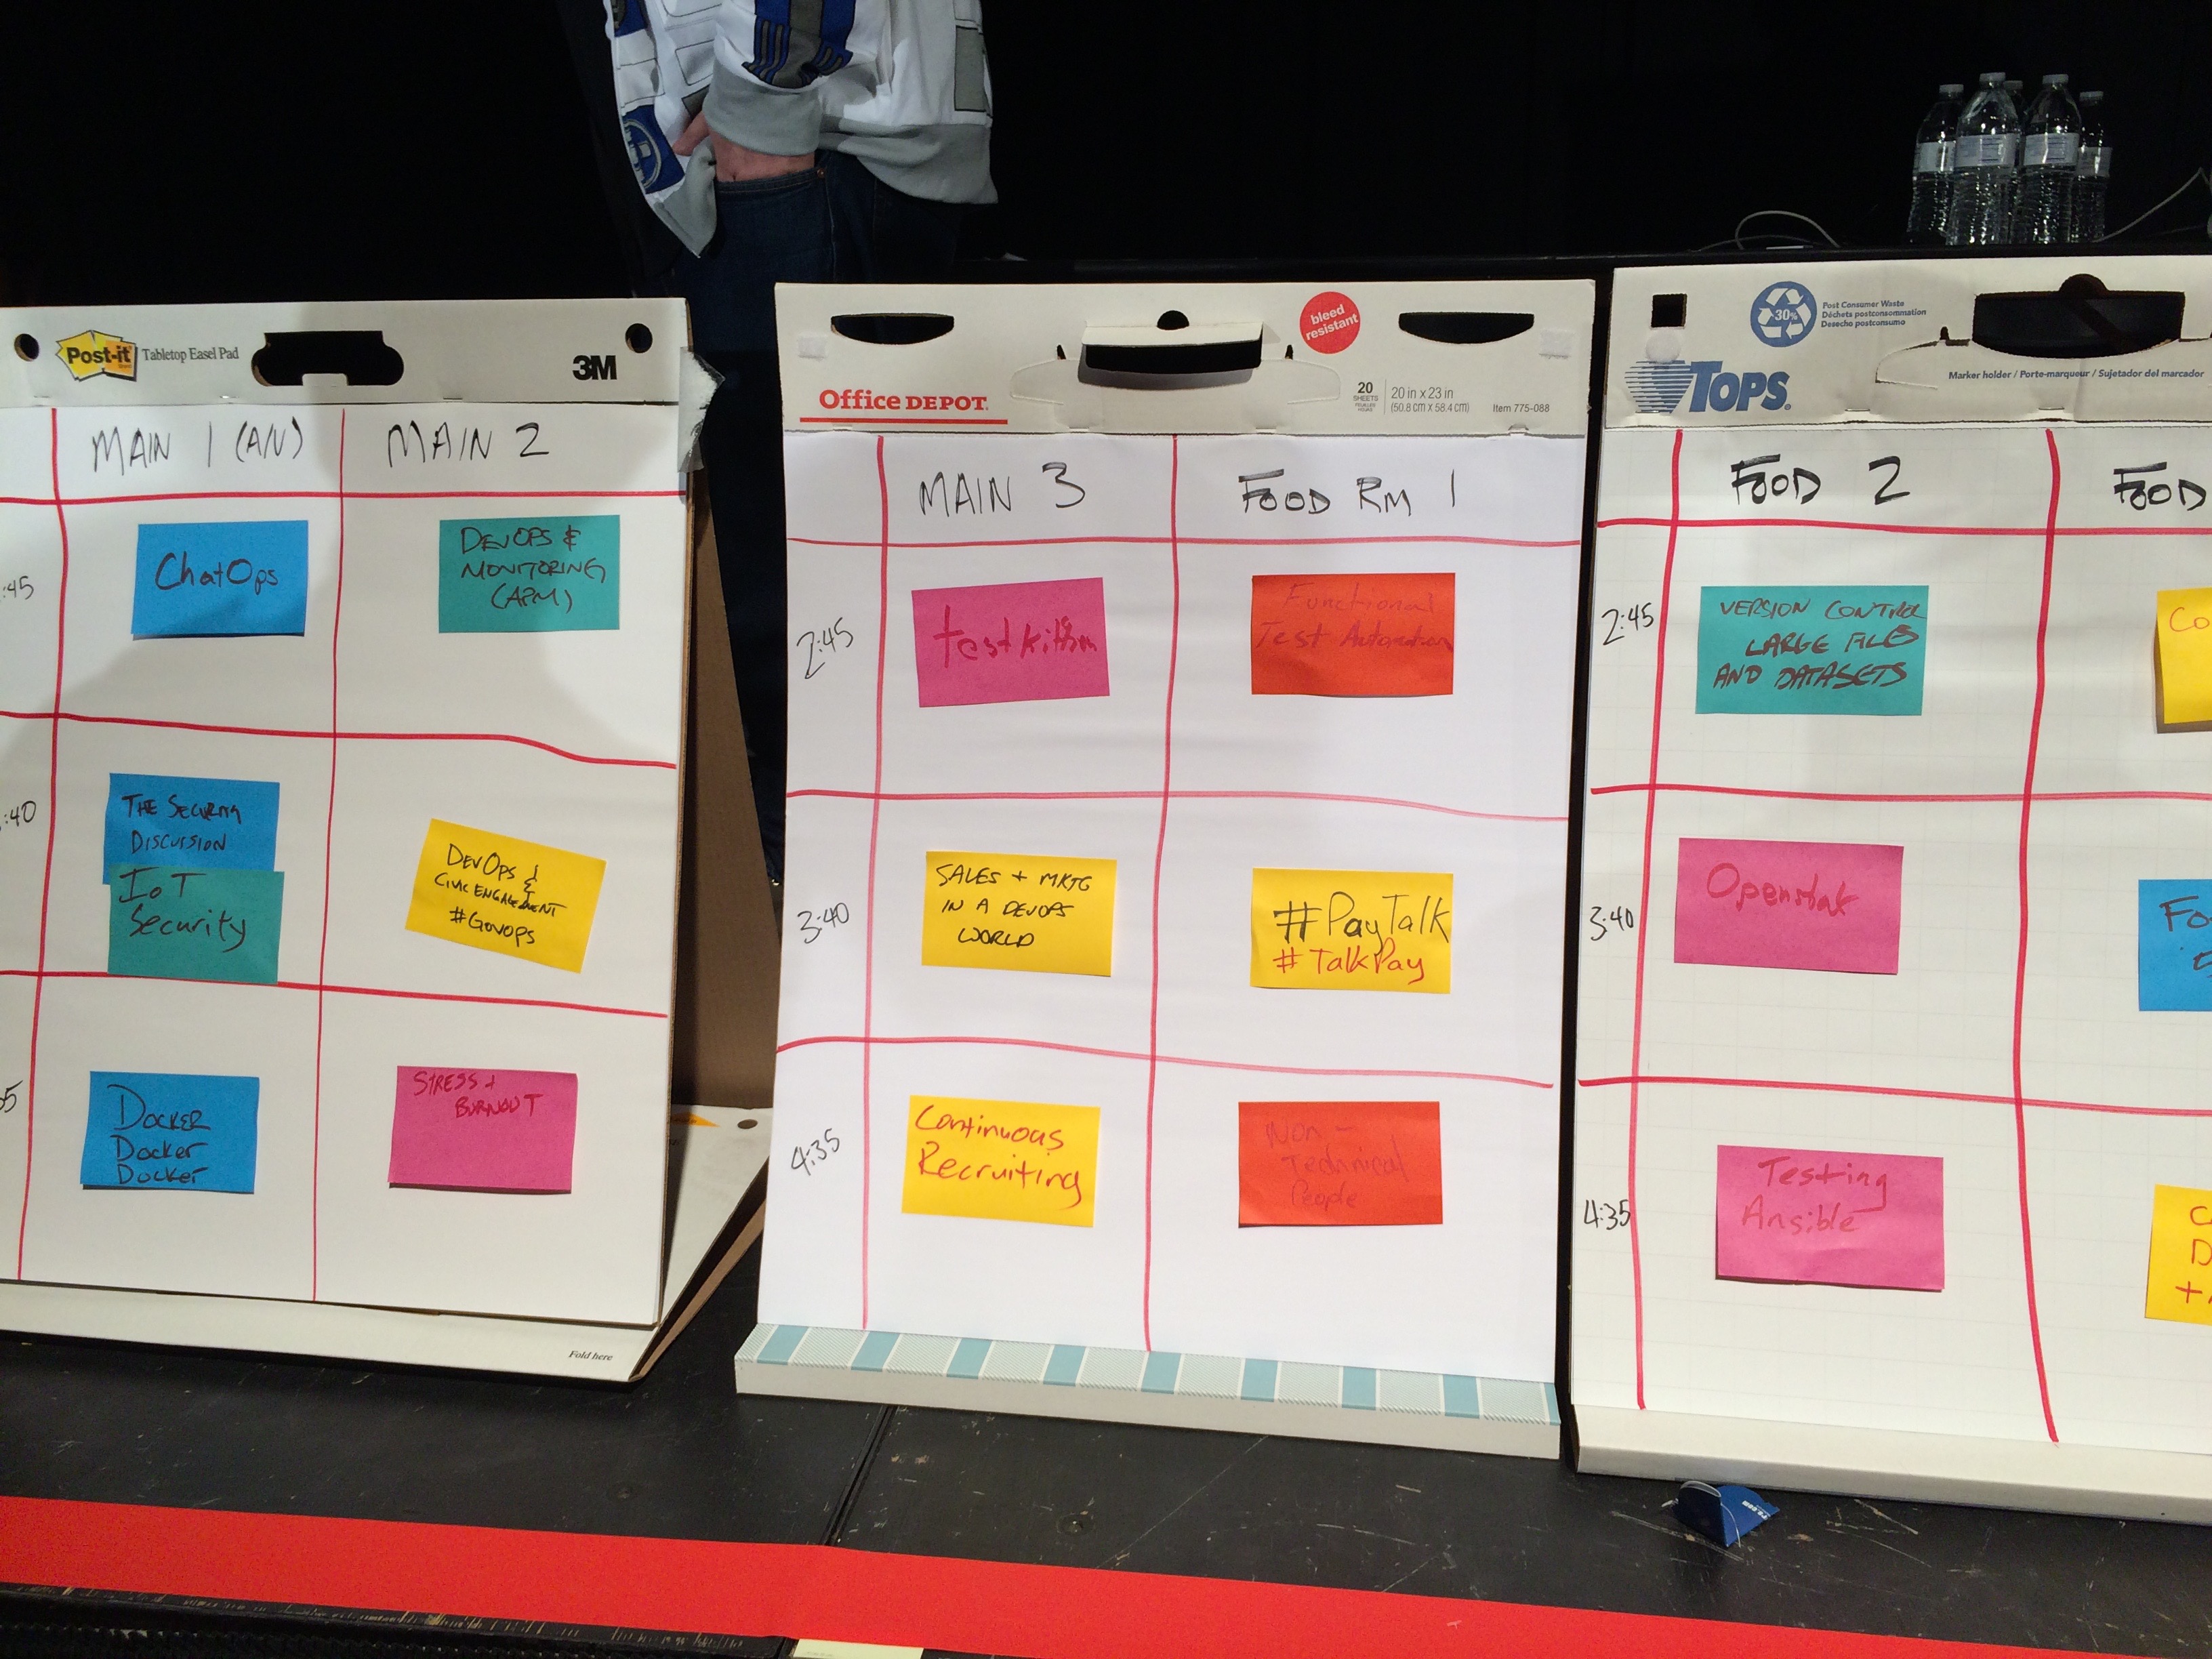 Post-it
Tabletop Easel Pad
3M
MAIN 1 (A/V)
MAIN 2
:45
ChatOps
DEVOPS &
MONITORING
(APM)
:40
THE SECURITY
DISCUSSION
IoT
Security
DEVOPS &
CIVIC ENGAGEMENT
#GovOps
DOCKER
Docker
Docker
STRESS +
BURNOUT
Fold here
bleed
resistant
Office DEPOT
20
SHEETS
20 in x 23 in
(50.8 cm x 58.4 cm)
Item 775-088
MAIN 3
FOOD RM 1
2:45
test kitchen
Functional
Test Automation
3:40
SALES + MKTG
IN A DEVOPS
WORLD
#PayTalk
#TalkPay
4:35
Continuous
Recruiting
Non-
Technical
People
30%
Post Consumer Waste
Déchets postconsommation
Desecho postconsumo
TOPS
Marker holder / Porte-marqueur / Sujetador del marcador
FOOD 2
FOOD
2:45
VERSION CONTROL
LARGE FILES
AND DATASETS
Co
3:40
Openstak
Fo
4:35
Testing
Ansible
C
D
+